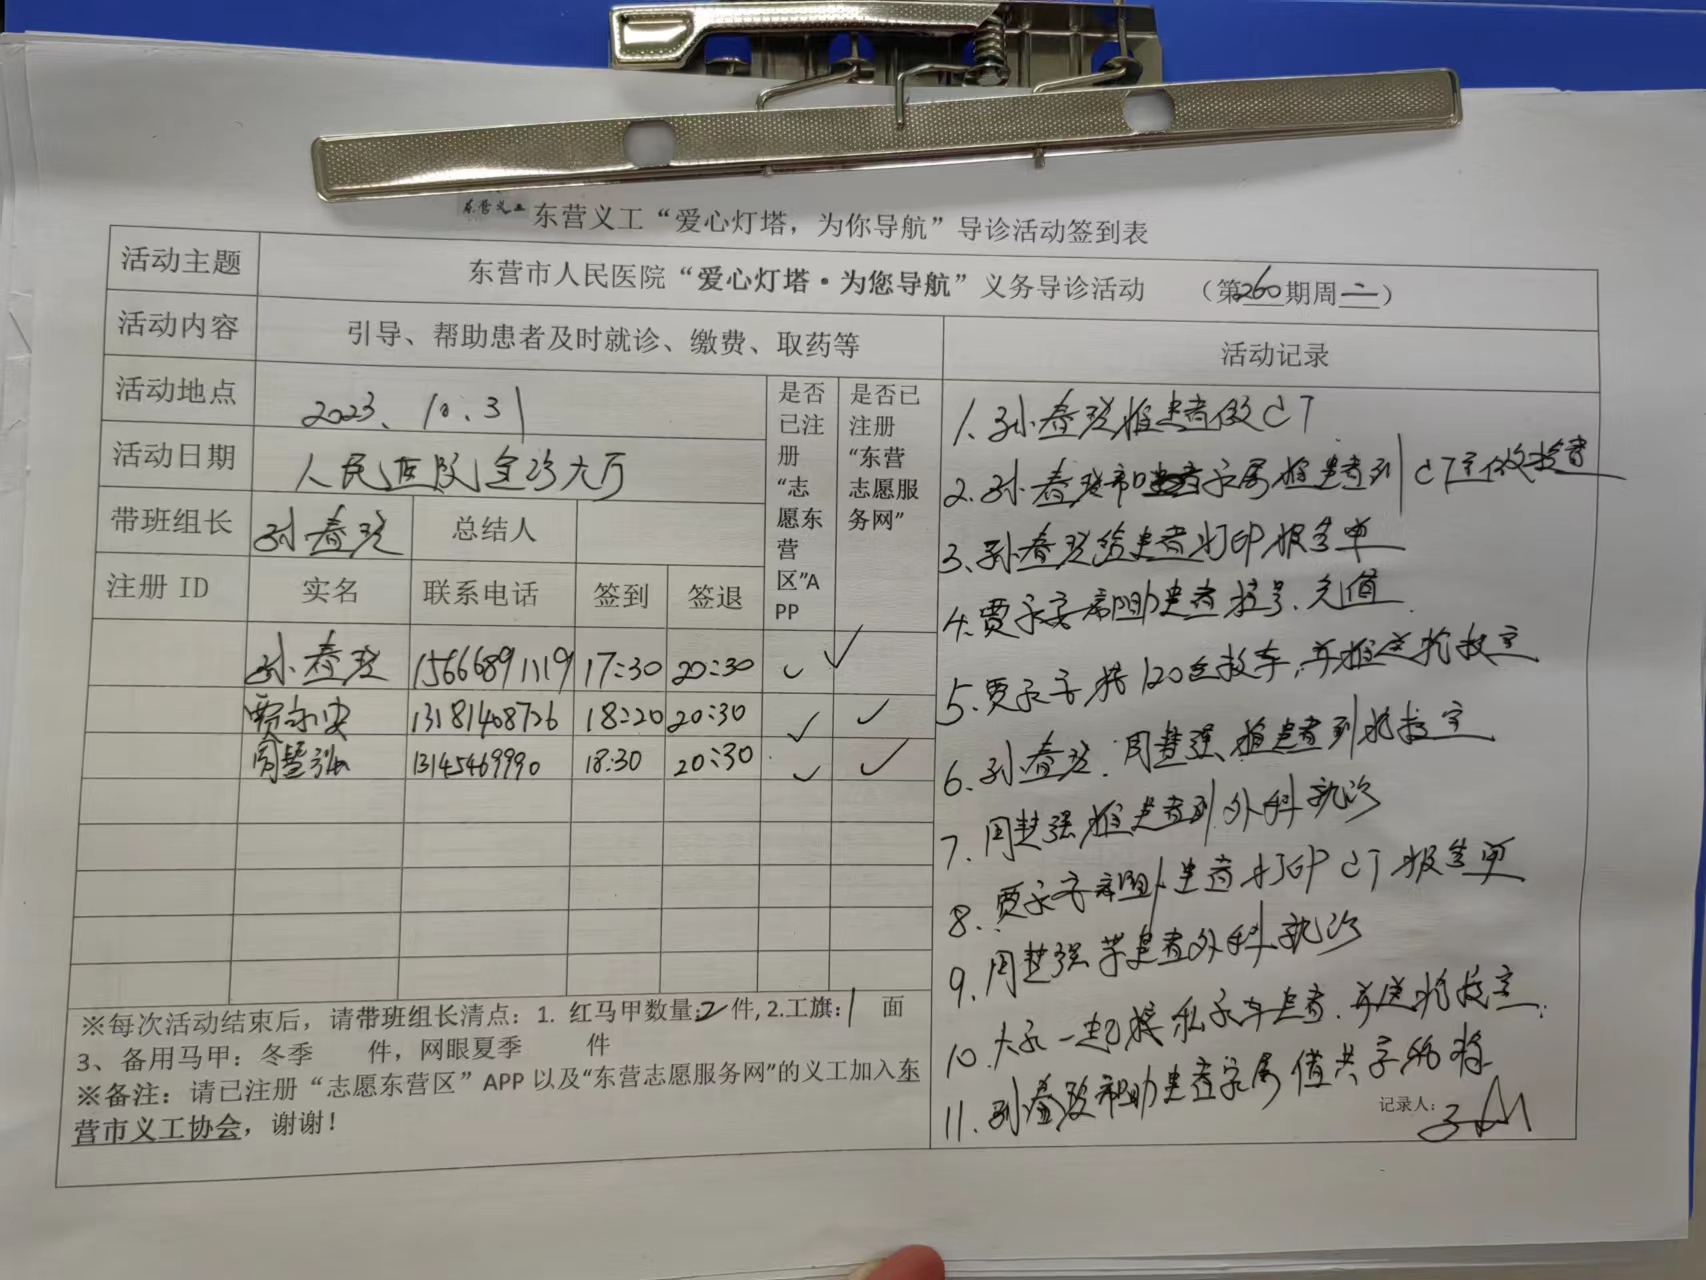 东营义工 东营义工“爱心灯塔，为你导航”导诊活动签到表
活动主题 东营市人民医院“爱心灯塔·为您导航”义务导诊活动 （第260期周二）
活动内容 引导、帮助患者及时就诊、缴费、取药等 活动记录
活动地点 2023、10.31
活动日期 人民医院急诊大厅
是否已注册“志愿东营区”APP
是否已注册“东营志愿服务网”
带班组长 孙春 总结人
注册 ID 实名 联系电话 签到 签退
孙春 15666891119 17:30 20:30 ✓ ✓
贾永安 13181408726 18:20 20:30 ✓ ✓
周 强 13145469990 18:30 20:30 ✓ ✓
※每次活动结束后，请带班组长清点：1. 红马甲数量:2件, 2.工旗:1 面
3、备用马甲：冬季 件，网眼夏季 件
※备注：请已注册“志愿东营区”APP 以及“东营志愿服务网”的义工加入东
营市义工协会，谢谢！
1、孙春 推患者做CT
2、孙春 和 家属推患者到CT室做检查
3、孙春 给患者打印报告单
4、贾永安帮助患者挂号、充值
5、贾永安接120急救车，并推送抢救室
6、孙春 、周 强推患者到抢救室
7、周 强推患者到外科就诊
8、贾永安帮助患者打印CT报告单
9、周 强 患者外科就诊
10、大家一起接私家车患者，并送抢救室
11、孙春 帮助患者家属
记录人：